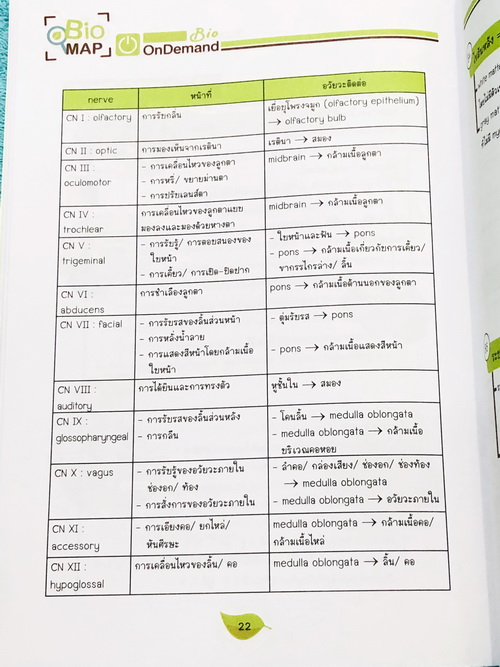 Bio
MAP
Bio
OnDemand
nerve หน้าที่ อวัยวะติดต่อ
CN I : olfactory การรับกลิ่น เยื่อบุโพรงจมูก (olfactory epithelium)
→ olfactory bulb
CN II : optic การมองเห็นจากเรตินา เรตินา → สมอง
CN III :
oculomotor
- การเคลื่อนไหวของลูกตา
- การหรี่/ ขยายม่านตา
- การปรับเลนส์ตา
midbrain → กล้ามเนื้อลูกตา
CN IV :
trochlear
การเคลื่อนไหวของลูกตาแบบ
มองลงและมองด้วยหางตา
midbrain → กล้ามเนื้อลูกตา
CN V :
trigeminal
- การรับรู้/ การตอบสนองของ
ใบหน้า
- การเคี้ยว/ การเปิด-ปิดปาก
- ใบหน้าและฟัน → pons
- pons → กล้ามเนื้อเกี่ยวกับการเคี้ยว/
ขากรรไกรล่าง/ ลิ้น
CN VI :
abducens
การชำเลืองลูกตา
pons → กล้ามเนื้อด้านนอกของลูกตา
CN VII : facial
- การรับรสของลิ้นส่วนหน้า
- การหลั่งน้ำลาย
- การแสดงสีหน้าโดยกล้ามเนื้อ
ใบหน้า
- ตุ่มรับรส → pons
- pons → กล้ามเนื้อแสดงสีหน้า
CN VIII :
auditory
การได้ยินและการทรงตัว
หูชั้นใน → สมอง
CN IX :
glossopharyngeal
- การรับรสของลิ้นส่วนหลัง
- การกลืน
- โคนลิ้น → medulla oblongata
- medulla oblongata → กล้ามเนื้อ
บริเวณคอหอย
CN X : vagus
- การรับรู้ของอวัยวะภายใน
ช่องอก/ ท้อง
- การสั่งการของอวัยวะภายใน
- ลำคอ/ กล่องเสียง/ ช่องอก/ ช่องท้อง
→ medulla oblongata
- medulla oblongata → อวัยวะภายใน
CN XI :
accessory
- การเอียงคอ/ ยกไหล่/
หันศีรษะ
medulla oblongata → กล้ามเนื้อคอ/
กล้ามเนื้อไหล่
CN XII :
hypoglossal
การเคลื่อนไหวของลิ้น/ คอ
medulla oblongata → ลิ้น/ คอ
22